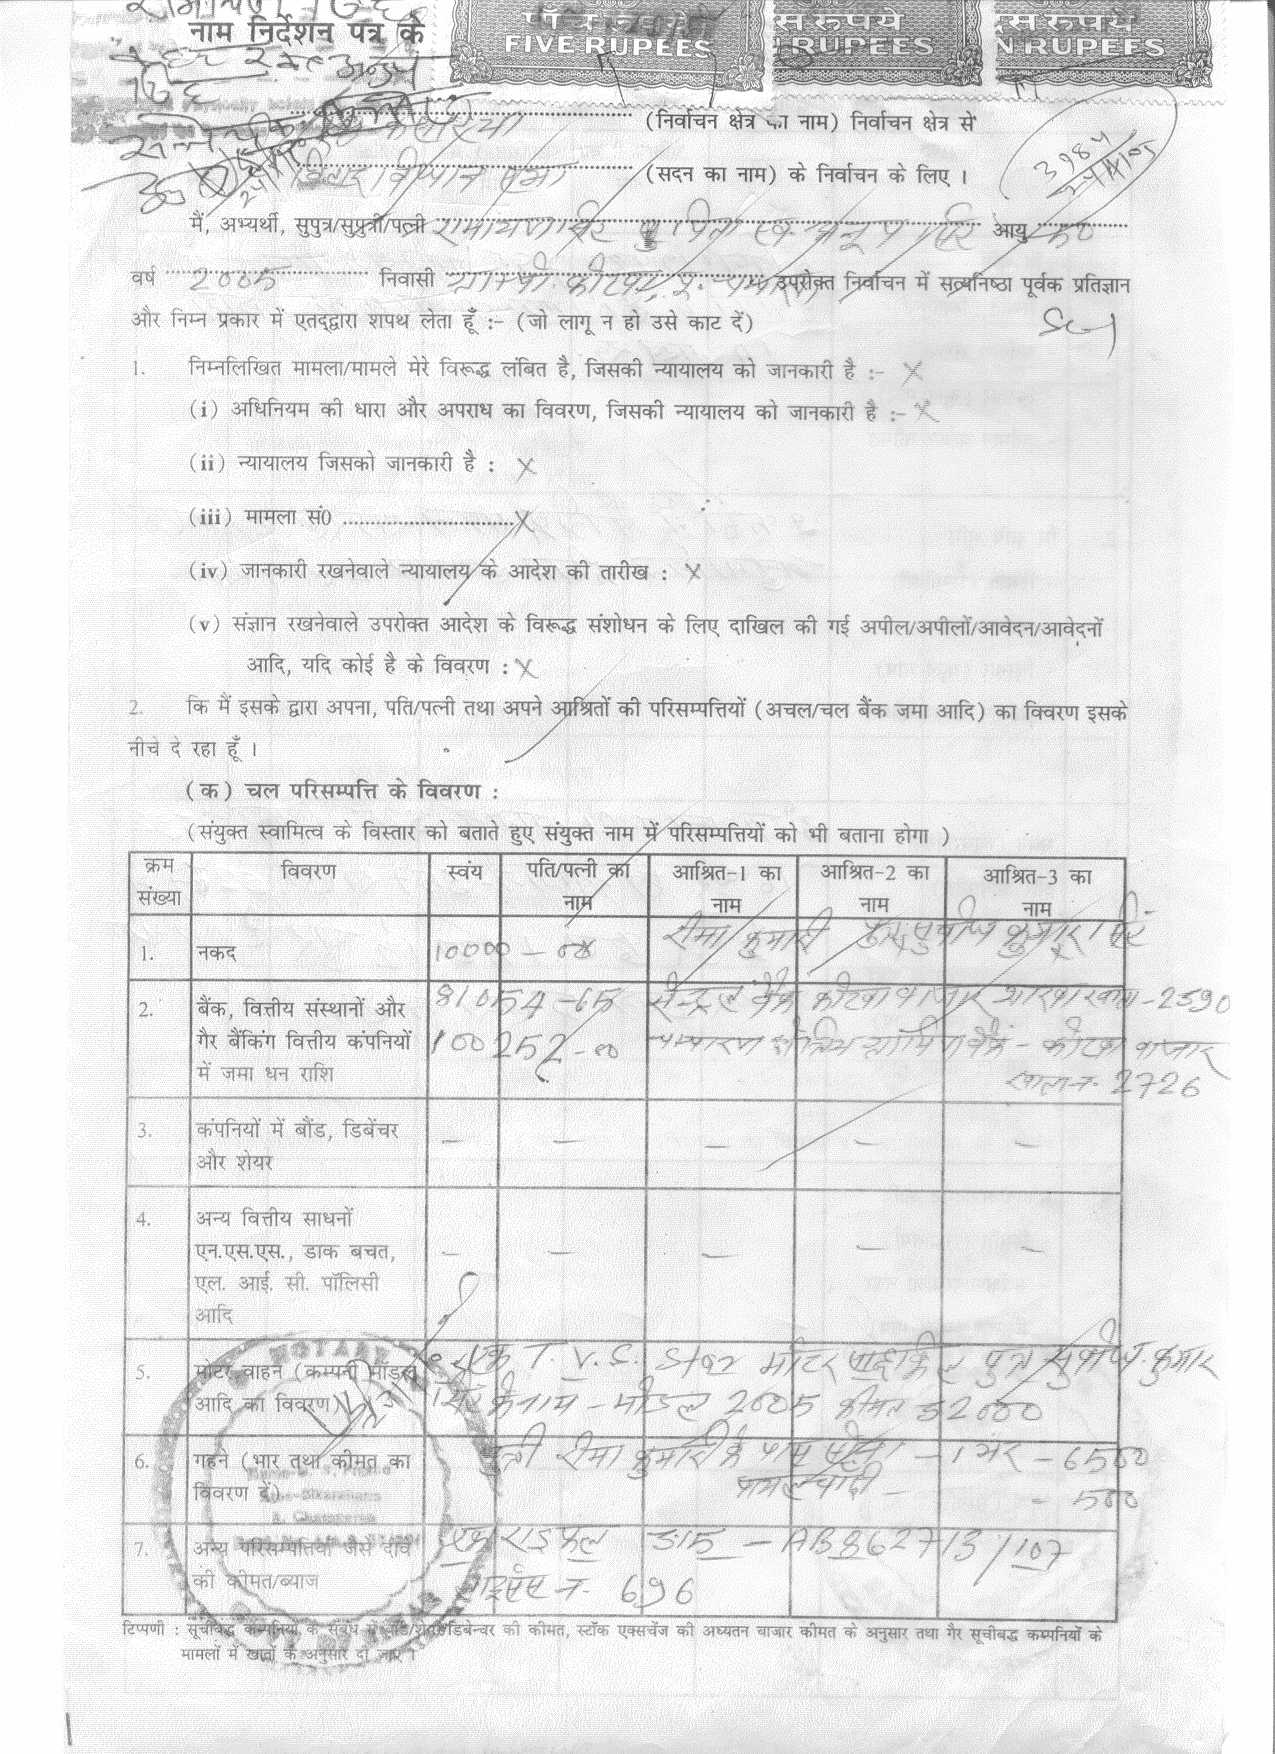 नाम निर्देशन पत्र के
पाँच रुपये
FIVE RUPEES
स रुपये
N RUPEES
स रुपये
N RUPEES
(निर्वाचन क्षेत्र का नाम) निर्वाचन क्षेत्र से
बिहार विधान सभा (सदन का नाम) के निर्वाचन के लिए ।
मैं, अभ्यर्थी, सुपुत्र/सुपुत्री/पत्नी रामायण सिंह पिता स्व॰ अनूप सिंह आयु 60
वर्ष 2005 निवासी उपरोक्त निर्वाचन में सत्यनिष्ठा पूर्वक प्रतिज्ञान
और निम्न प्रकार में एतद्द्वारा शपथ लेता हूँ :- (जो लागू न हो उसे काट दें)
1. निम्नलिखित मामला/मामले मेरे विरूद्ध लंबित है, जिसकी न्यायालय को जानकारी है :- X
(i) अधिनियम की धारा और अपराध का विवरण, जिसकी न्यायालय को जानकारी है :- X
(ii) न्यायालय जिसको जानकारी है : X
(iii) मामला सं0 ..............................X
(iv) जानकारी रखनेवाले न्यायालय के आदेश की तारीख : X
(v) संज्ञान रखनेवाले उपरोक्त आदेश के विरूद्ध संशोधन के लिए दाखिल की गई अपील/अपीलों/आवेदन/आवेदनों
आदि, यदि कोई है के विवरण : X
2. कि मैं इसके द्वारा अपना, पति/पत्नी तथा अपने आश्रितों की परिसम्पत्तियों (अचल/चल बैंक जमा आदि) का विवरण इसके
नीचे दे रहा हूँ ।
(क) चल परिसम्पत्ति के विवरण :
(संयुक्त स्वामित्व के विस्तार को बताते हुए संयुक्त नाम में परिसम्पत्तियों को भी बताना होगा )
क्रम संख्या विवरण स्वंय पति/पत्नी का नाम आश्रित-1 का नाम आश्रित-2 का नाम आश्रित-3 का नाम
रीमा कुमारी सुबोध कुमार सिंह
1. नकद 10000 - 00
2. बैंक, वित्तीय संस्थानों और 81054-65 सेन्ट्रल बैंक कोटवा बाजार शाखा खाता - 2590
गैर बैंकिंग वित्तीय कंपनियों 100252-00 चम्पारण क्षेत्रिय ग्रामिण बैंक - कोटवा बाजार
में जमा धन राशि खाता न. 2726
3. कंपनियों में बौंड, डिबेंचर – – – – –
और शेयर
4. अन्य वित्तीय साधनों
एन.एस.एस., डाक बचत, – – – – –
एल. आई. सी. पॉलिसी
आदि
5. मोटर वाहन (कम्पनी मॉडल एक T.V.S. Star मोटर साईकिल पुत्र सुबोध कुमार
आदि का विवरण) सिंह के नाम - मोडल 2005 कीमत 32000
6. गहने (भार तथा कीमत का पुत्री रीमा कुमारी के पास सोना - 1 भर - 6500
विवरण दें) चांदी - - 500
7. अन्य परिसम्पत्तियाँ जैसे दावे एक राइफल - AB8627 13/107
की कीमत/ब्याज लाइसेंस न. 696
NOTARY
टिप्पणी : सूचीबद्ध कम्पनियों के संबंध में बौंड/शेयर/डिबेन्चर की कीमत, स्टॉक एक्सचेंज की अध्यतन बाजार कीमत के अनुसार तथा गैर सूचीबद्ध कम्पनियों के
मामलों में खातों के अनुसार दी जाए ।